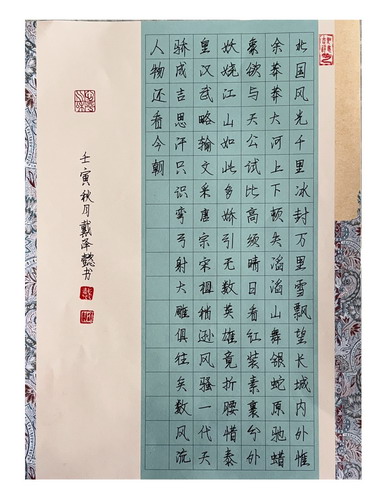 北国风光千里冰封万里雪飘望长城内外惟
余莽莽大河上下顿失滔滔山舞银蛇原驰蜡
象欲与天公试比高须晴日看红装素裹分外
妖娆江山如此多娇引无数英雄竟折腰惜秦
皇汉武略输文采唐宗宋祖稍逊风骚一代天
骄成吉思汗只识弯弓射大雕俱往矣数风流
人物还看今朝
壬寅秋月戴泽懿书